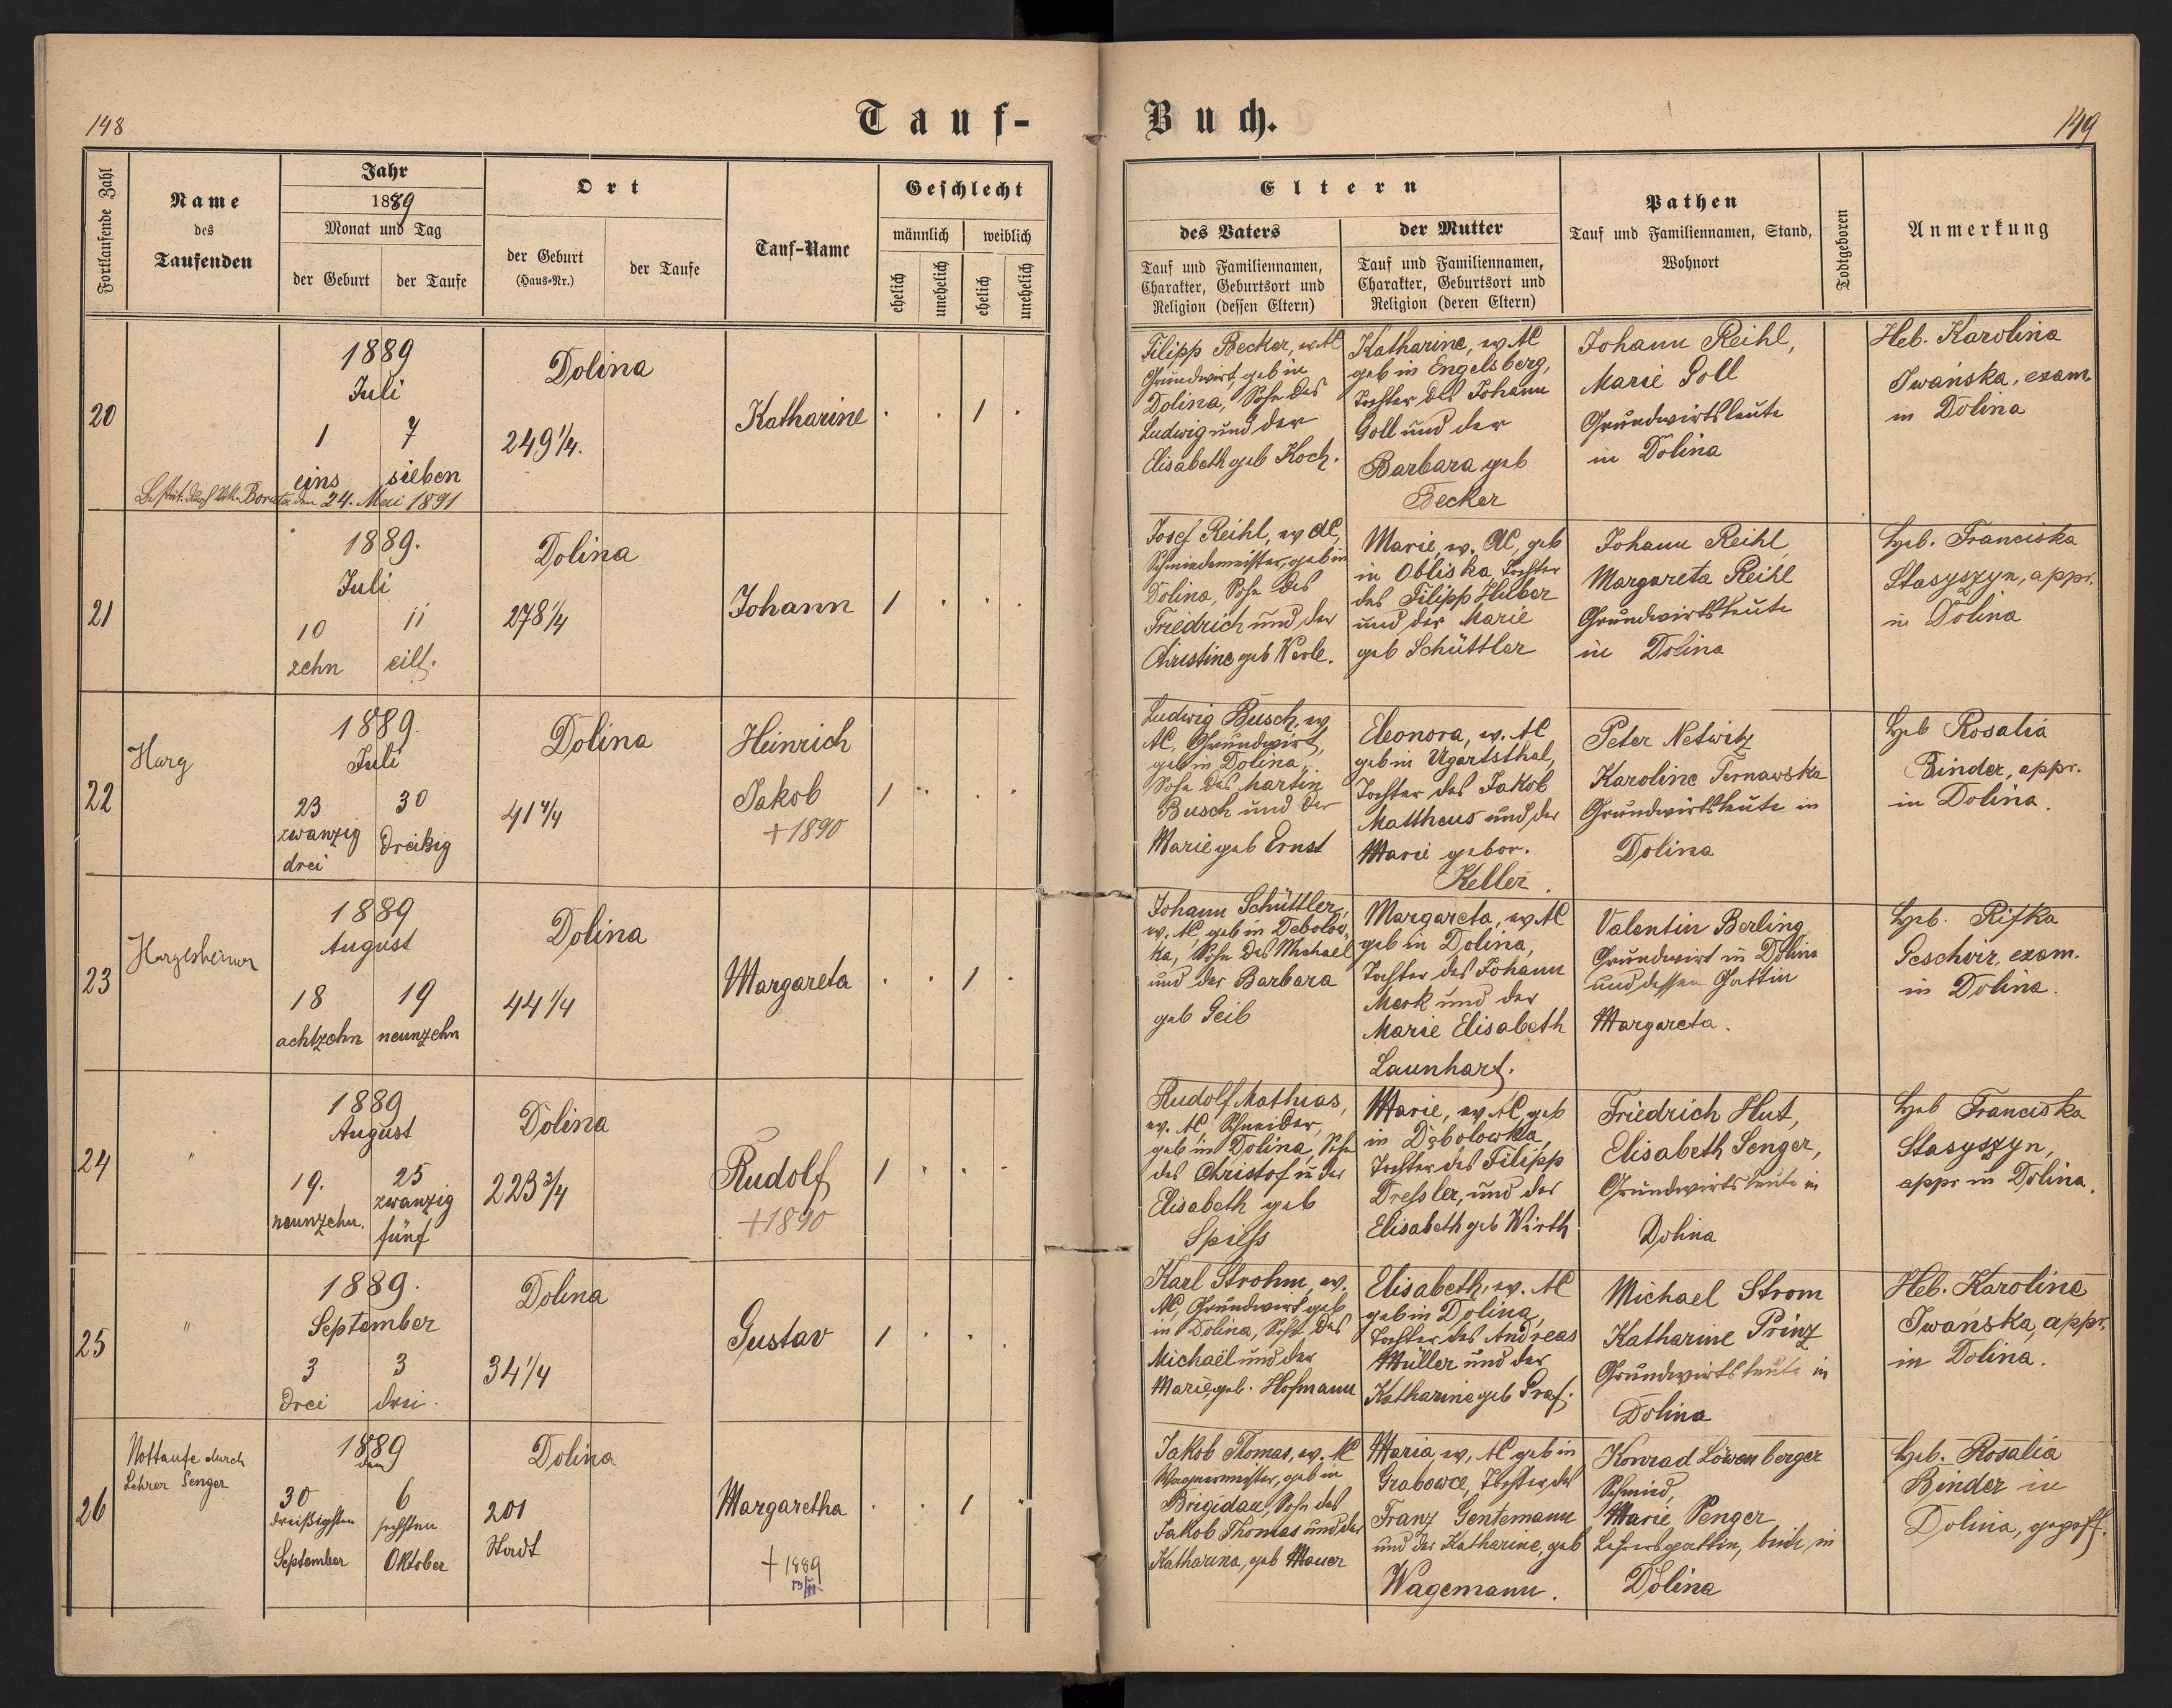 148
Tauf-
Fortlaufende Zahl
Name
des
Taufenden
Jahr
1889
Monat und Tag
der Geburt
der Taufe
Ort
der Geburt
(Haus-Nr.)
der Taufe
Tauf-Name
Geschlecht
männlich
weiblich
ehelich
unehelich
ehelich
unehelich
20
1889
Juli
1 7
eins sieben
den 24. Mai 1891
Dolina
249 1/4.
Katharine
1
21
1889.
Juli
10 11
zehn eilf.
Dolina
278 1/4
Johann
1
22
Harg
1889.
Juli
23 30
zwanzig dreißig
drei
Dolina
41 4/4
Heinrich
Jakob
+ 1890
1
23
Hargesheimer
1889
August
18 19
achtzehn neunzehn
Dolina
44 1/4
Margareta
1
24
"
1889
August
19. 25
neunzehn. zwanzig
fünf
Dolina
223 3/4
Rudolf
+ 1890
1
25
"
1889.
September
3 3
drei drei.
Dolina
34 1/4
Gustav
1
26
Nottaufe durch
Lehrer Senger
1889
den
30 6
dreißigsten sechsten
September Oktober
Dolina
201
Stadt
Margaretha
+ 1889
1
Buch.
149
Eltern
des Vaters
Tauf und Familiennamen,
Charakter, Geburtsort und
Religion (dessen Eltern)
der Mutter
Tauf und Familiennamen,
Charakter, Geburtsort und
Religion (deren Eltern)
Pathen
Tauf und Familiennamen, Stand,
Wohnort
Todtgeboren
Anmerkung
Filipp Becker, ev AC
Grundwirt, geb in
Dolina, Sohn des
Ludwig und der
Elisabeth geb Koch.
Katharine, ev AC
geb in Engelsberg,
Tochter des Johann
Goll und der
Barbara geb
Becker
Johann Reihl,
Marie Goll
Grundwirtsleute
in Dolina
Heb. Karolina
Iwańska, exam.
in Dolina
Josef Reihl, ev AC,
Schmiedemeister, geb in
Dolina, Sohn des
Friedrich und der
Christine geb Werle.
Marie, ev. AC, geb
in Obliska Tochter
des Filipp Huber
und der Marie
geb Schüttler
Johann Reihl
Margareta Reihl
Grundwirtsleute
in Dolina
Heb. Franciska
Stasyszyn, appr.
in Dolina
Ludwig Busch, ev
AC, Grundwirt,
geb in Dolina,
Sohn des Martin
Busch und der
Marie geb Ernst
Eleonora, ev. AC
geb in Ugartsthal,
Tochter des Jakob
Mattheus und der
Marie gebor.
Keller.
Peter Netwitz
Karoline Tarnawska
Grundwirtsleute in
Dolina
Heb Rosalia
Binder, appr.
in Dolina.
Johann Schüttler,
ev. AC, geb in Debolow-
ka, Sohn des Michael
und der Barbara
geb Geib
Margareta, ev AC
geb in Dolina,
Tochter des Johann
Merk und der
Marie Elisabeth
Launhart.
Valentin Berling
Grundwirt in Dolina
und dessen Gattin
Margareta.
Heb. Rifka
Geschirr, exam.
in Dolina.
Rudolf Mathias,
ev. AC Schneider,
geb in Dolina, Sohn
des Christof u der
Elisabeth geb
Spiess
Marie, ev AC, geb
in Debolowka,
Tochter des Filipp
Dressler, und der
Elisabeth geb Wirth
Friedrich Hut,
Elisabeth Senger,
Grundwirtsleute in
Dolina
Heb Franciska
Stasyszyn,
appr in Dolina.
Karl Strohm, ev.
AC, Grundwirt geb
in Dolina, Sohn des
Michael und der
Marie geb. Hofmann
Elisabeth, ev. AC
geb in Dolina,
Tochter des Andreas
Müller und der
Katharine geb Graf.
Michael Strom
Katharine Prinz
Grundwirtsleute in
Dolina
Heb. Karoline
Iwańska, appr.
in Dolina.
Jakob Thomas, ev. AC
Wagnermeister, geb in
Brigidau, Sohn des
Jakob Thomas und der
Katharina, geb Mauer
Maria, ev, AC geb in
Grabowce, Tochter des
Franz Gentemann
und der Katharine, geb
Wagemann.
Konrad Löwenberger
Schmied,
Marie Senger
Lehrersgattin, beide in
Dolina
Heb. Rosalia
Binder in
Dolina, geprft.